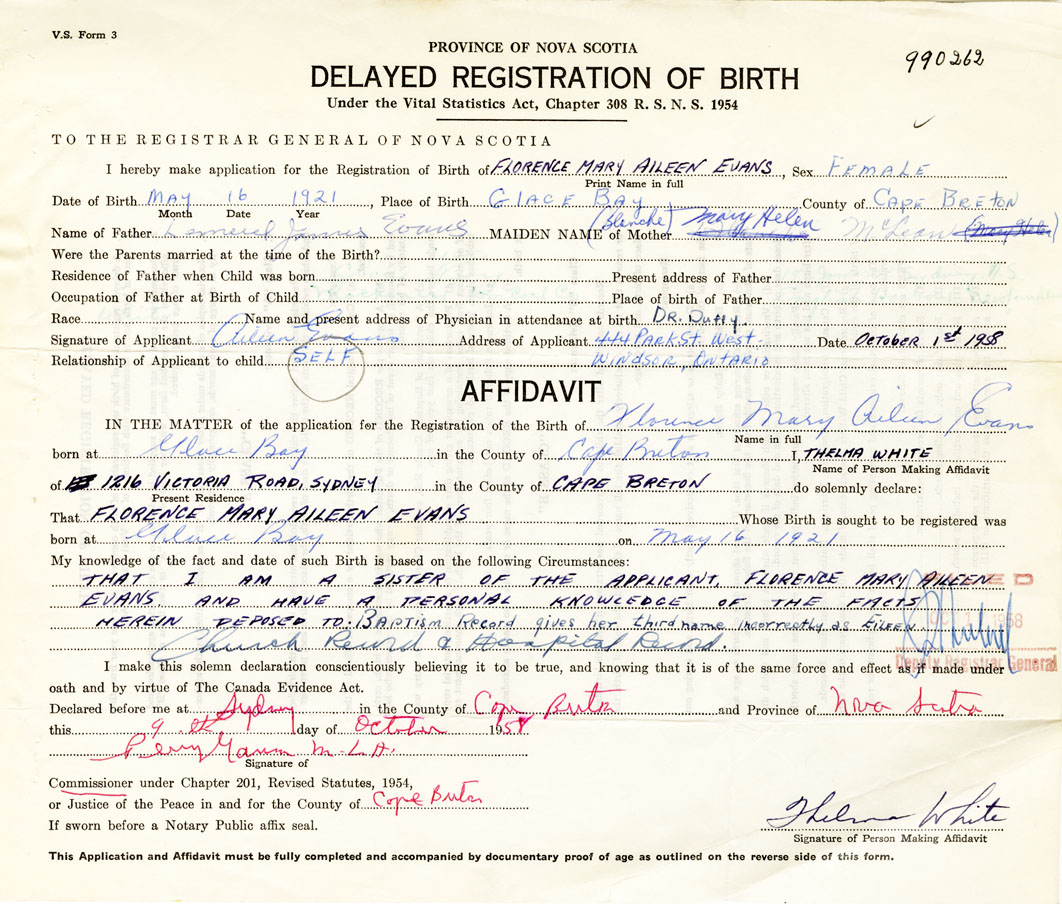 V.S. Form 3
PROVINCE OF NOVA SCOTIA
990262
DELAYED REGISTRATION OF BIRTH
Under the Vital Statistics Act, Chapter 308 R. S. N. S. 1954
TO THE REGISTRAR GENERAL OF NOVA SCOTIA
I hereby make application for the Registration of Birth of FLORENCE MARY AILEEN EVANS, Sex FEMALE
Print Name in full
Date of Birth MAY 16 1921, Place of Birth GLACE BAY County of CAPE BRETON
Month Date Year
Name of Father James Evans MAIDEN NAME of Mother (Blanche) Mary Helen McLean (Mary Helen)
Were the Parents married at the time of the Birth?
Residence of Father when Child was born Present address of Father
Occupation of Father at Birth of Child Place of birth of Father
Race Name and present address of Physician in attendance at birth DR. Duffy
Signature of Applicant Aileen Evans Address of Applicant 444 PARK ST. WEST. Date OCTOBER 1st 1958
Relationship of Applicant to child SELF WINDSOR, ONTARIO
AFFIDAVIT
IN THE MATTER of the application for the Registration of the Birth of Florence Mary Aileen Evans
Name in full
born at Glace Bay in the County of Cape Breton I, THELMA WHITE
Name of Person Making Affidavit
of 1216 VICTORIA ROAD, SYDNEY in the County of CAPE BRETON do solemnly declare:
Present Residence
That FLORENCE MARY AILEEN EVANS Whose Birth is sought to be registered was
born at Glace Bay on May 16 1921
My knowledge of the fact and date of such Birth is based on the following Circumstances:
THAT I AM A SISTER OF THE APPLICANT, FLORENCE MARY AILEEN
EVANS, AND HAVE A PERSONAL KNOWLEDGE OF THE FACTS
HEREIN DEPOSED TO. BAPTISM Record gives her third name incorrectly as EILEEN
Church Record & Hospital Record.
Deputy Registrar General
I make this solemn declaration conscientiously believing it to be true, and knowing that it is of the same force and effect as if made under
oath and by virtue of The Canada Evidence Act.
Declared before me at Sydney in the County of Cape Breton and Province of Nova Scotia
this 9 th day of October 1958
Percy Gaum M.L.A.
Signature of
Commissioner under Chapter 201, Revised Statutes, 1954,
or Justice of the Peace in and for the County of Cape Breton
If sworn before a Notary Public affix seal.
Thelma White
Signature of Person Making Affidavit
This Application and Affidavit must be fully completed and accompanied by documentary proof of age as outlined on the reverse side of this form.